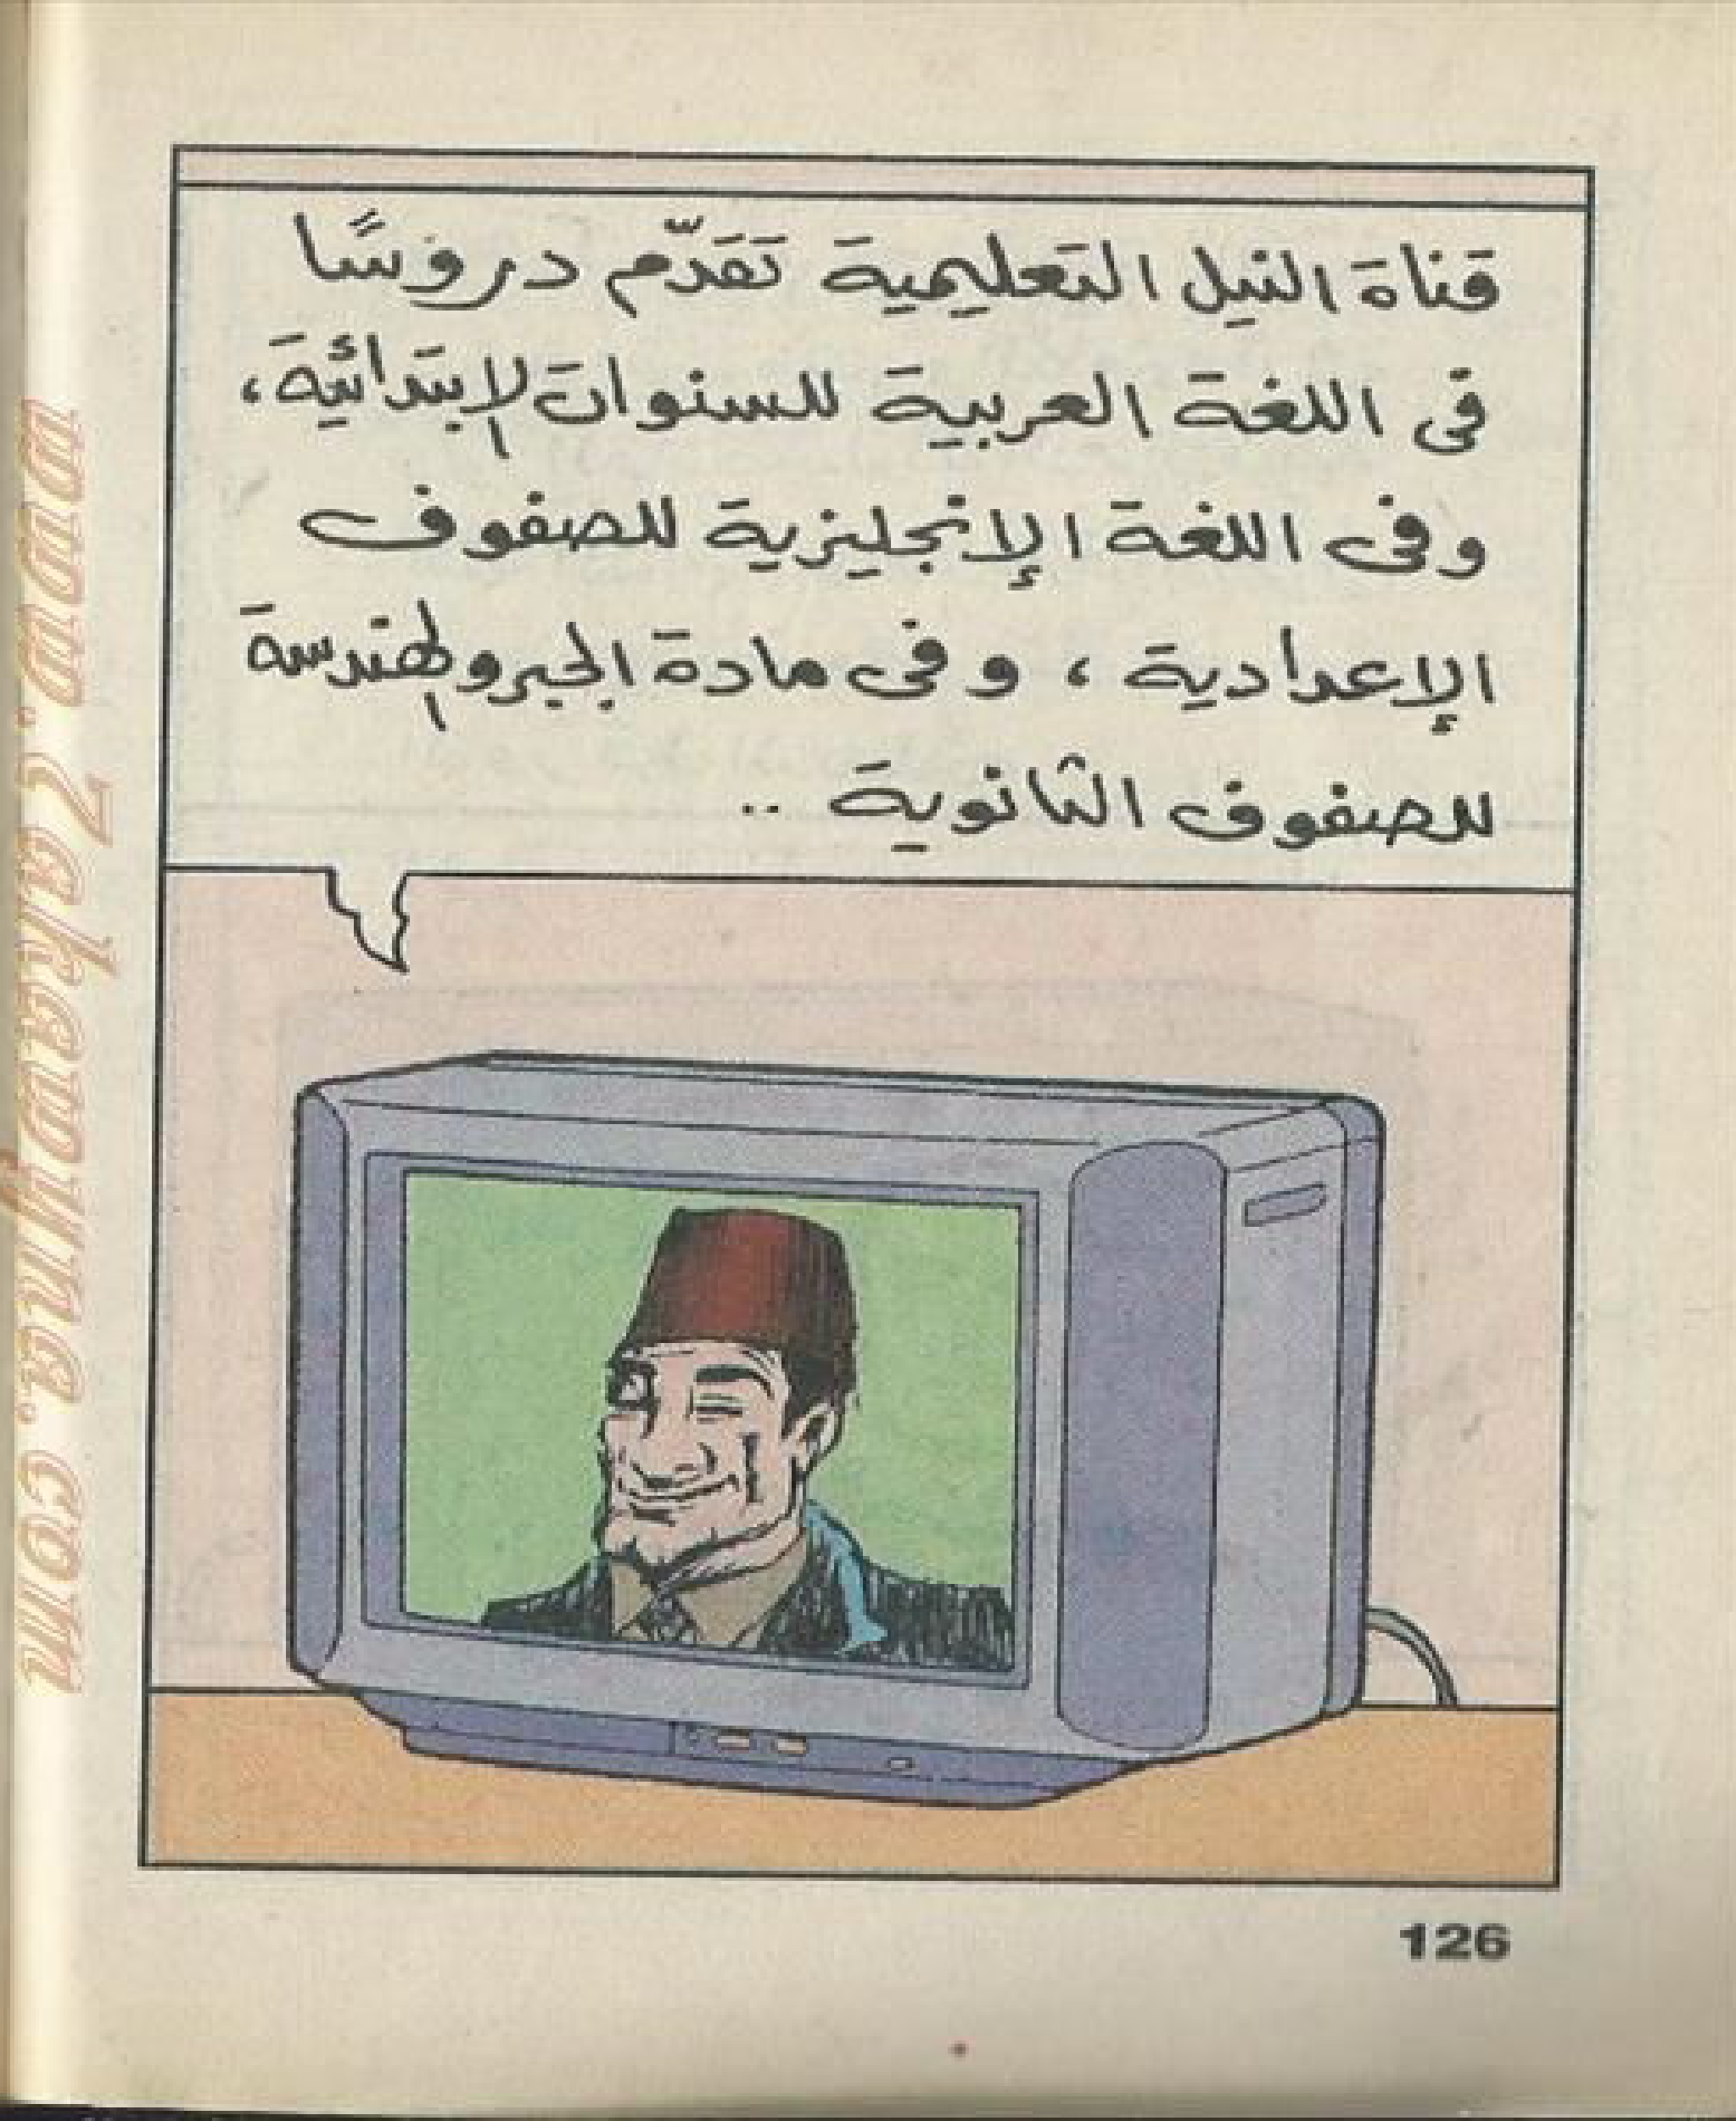 قناة النيل التعليمية تقدّم دروسًا
فى اللغة العربية للسنوات الابتدائية،
وفى اللغة الإنجليزية للصفوف
الإعدادية ، وفى مادة الجبر والهندسة
للصفوف الثانوية ..
126
www.zakarayna.com